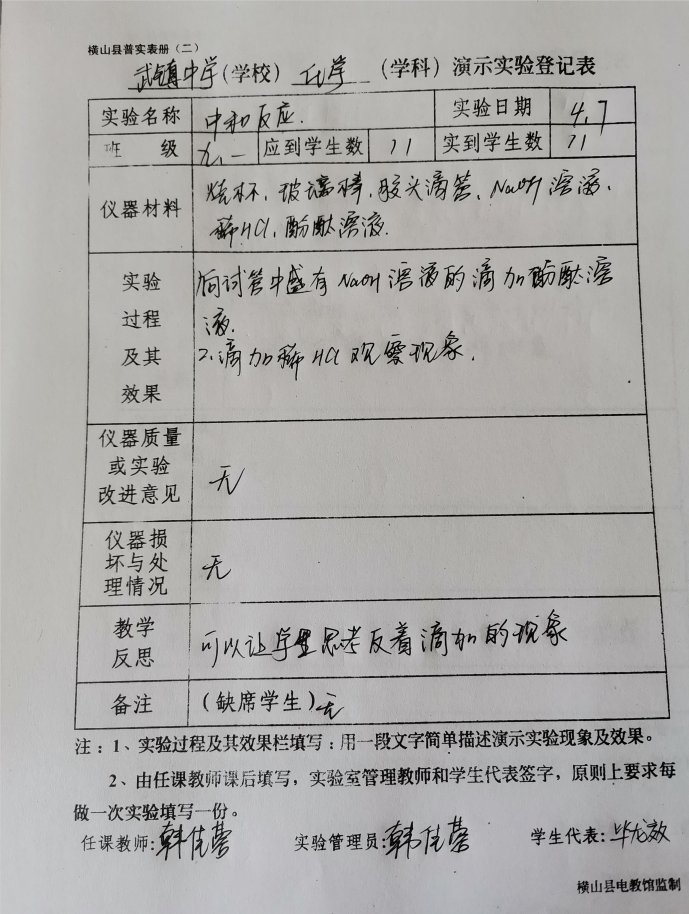 横山县普实表册（二）
武镇中学（学校）化学（学科）演示实验登记表
实验名称 中和反应. 实验日期 4.7
班 级 九.一 应到学生数 71 实到学生数 71
仪器材料 烧杯、玻璃棒、胶头滴管、NaOH溶液、
稀HCl、酚酞溶液.
实验 向试管中盛有NaOH溶液的滴加酚酞溶
过程 液.
及其 2.滴加稀HCl观察现象.
效果
仪器质量
或实验
改进意见 无
仪器损
坏与处 无
理情况
教学
反思 可以让学生思考反着滴加的现象
备注 （缺席学生）无
注：1、实验过程及其效果栏填写：用一段文字简单描述演示实验现象及效果。
2、由任课教师课后填写，实验室管理教师和学生代表签字，原则上要求每
做一次实验填写一份。
任课教师：韩佳蓉 实验管理员：韩佳蓉 学生代表：毕
横山县电教馆监制